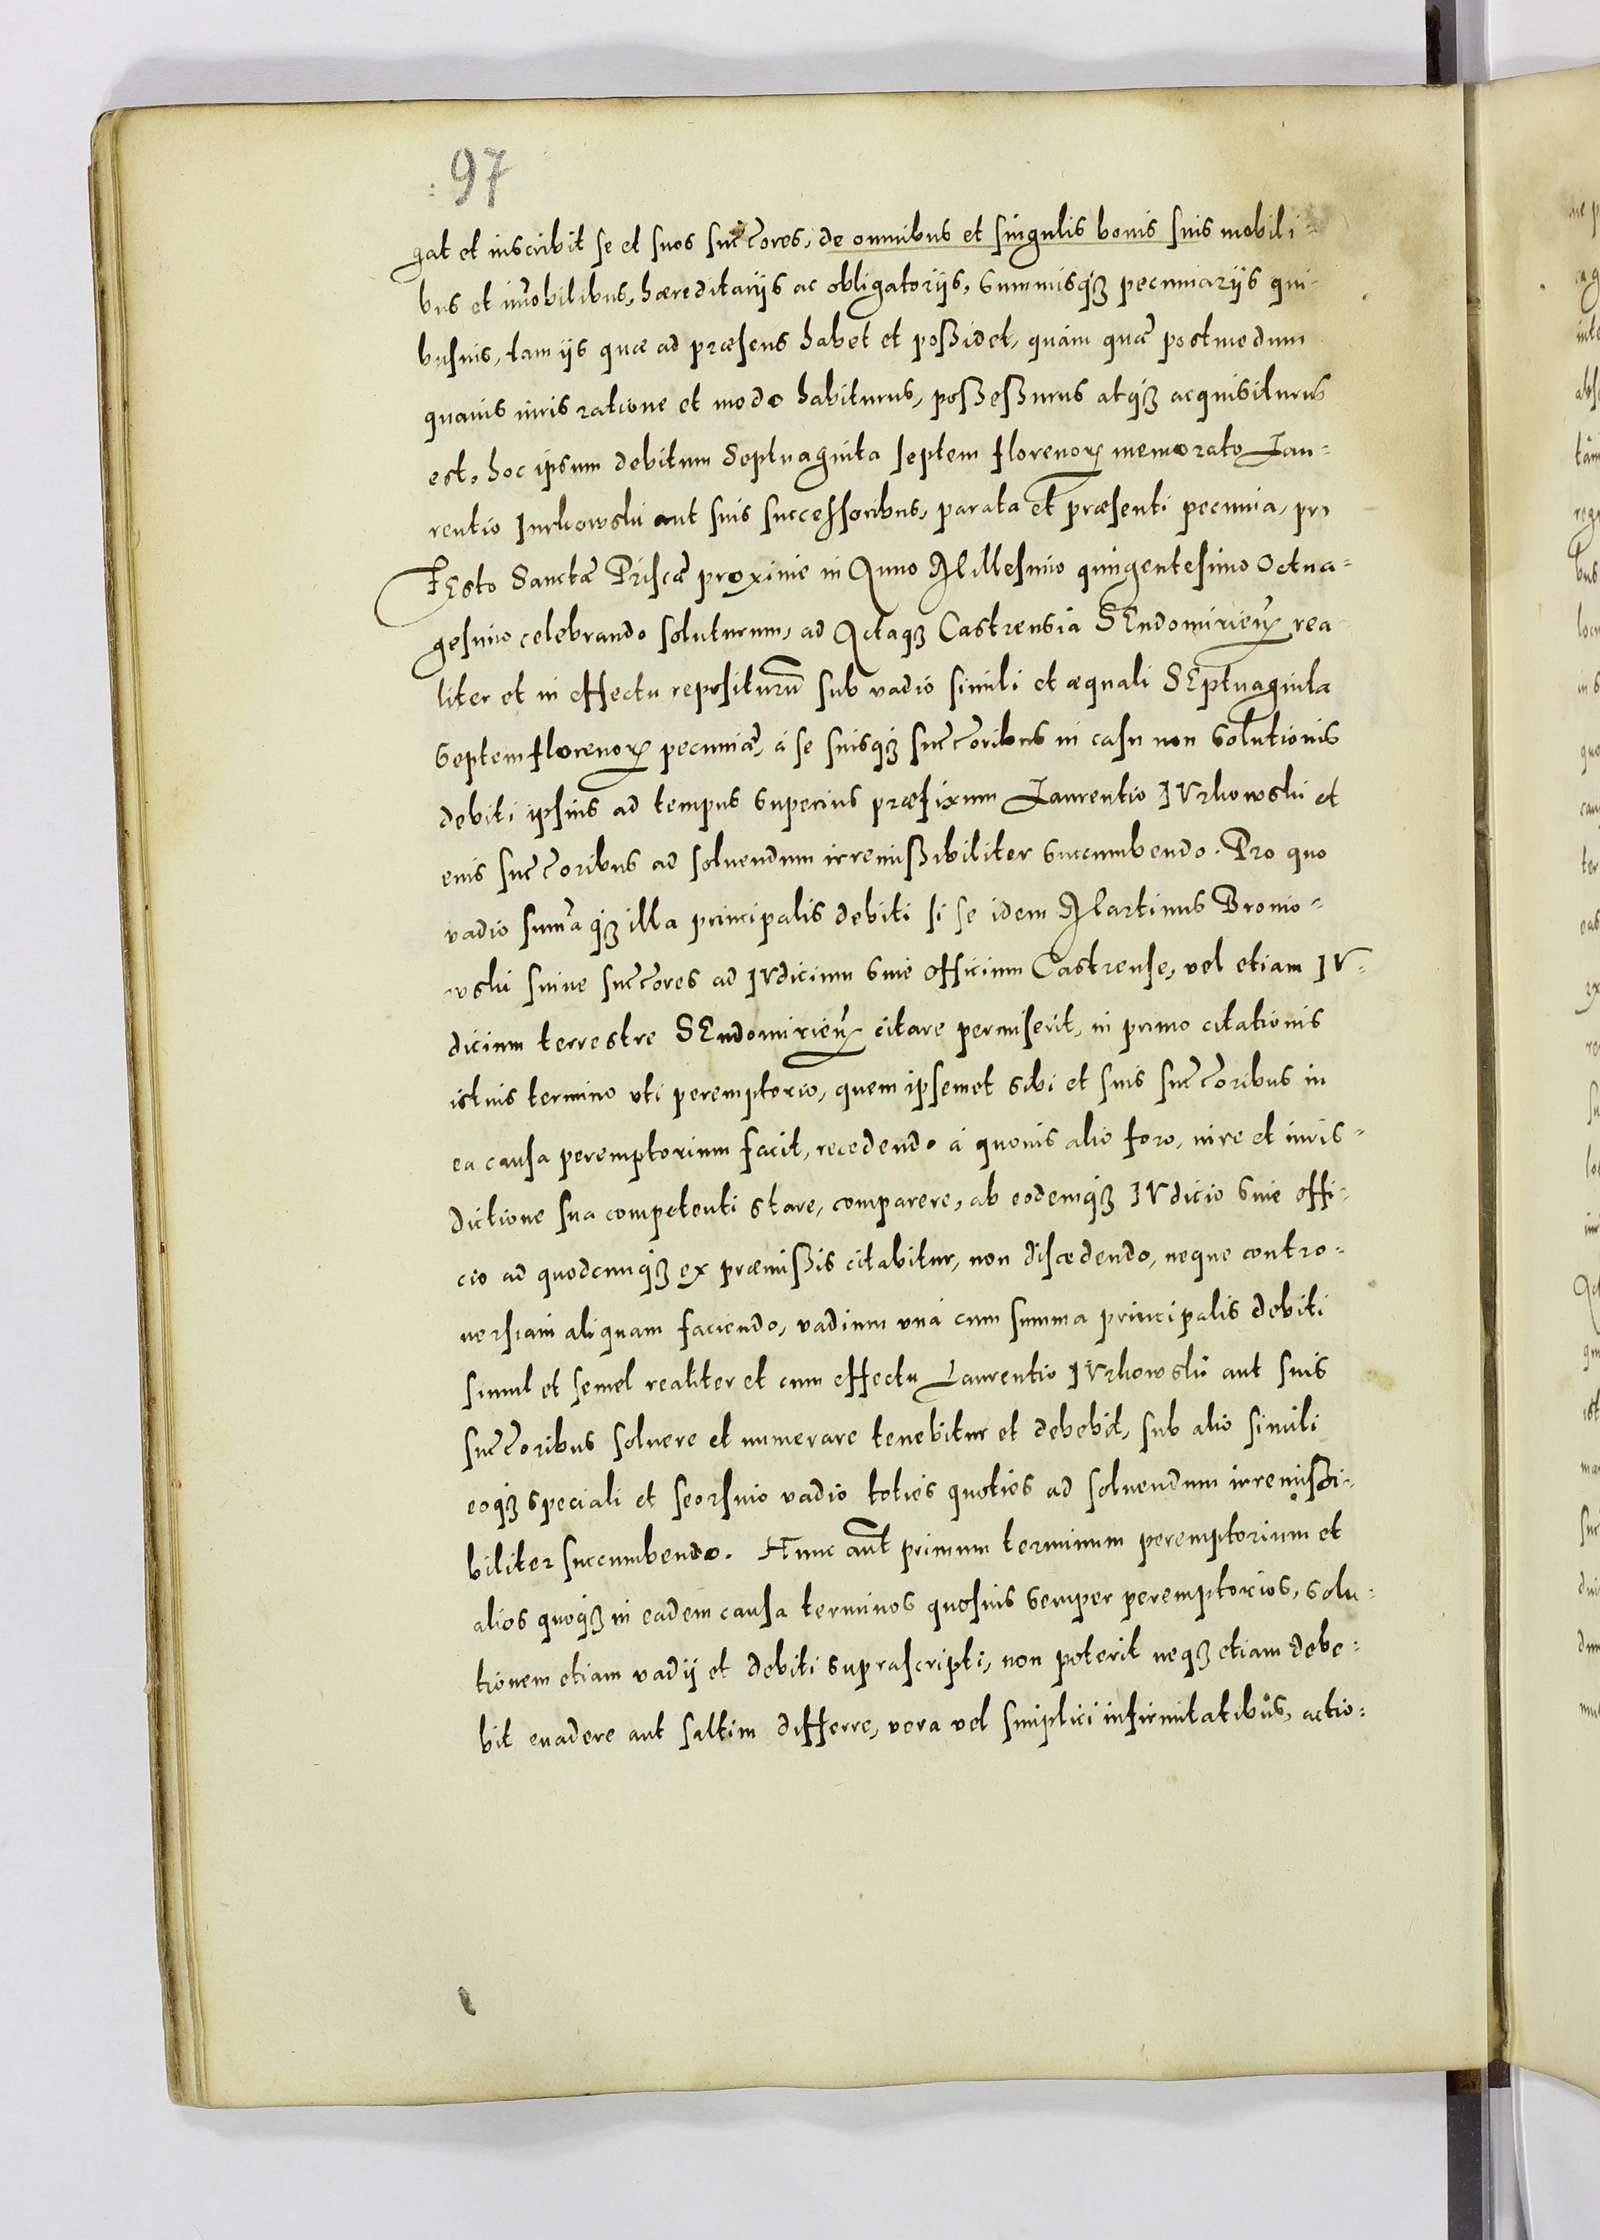 97
gat et inscribit se et suos succ̃ores, de omnibus et singulis bonis suis mobili-
bus et im̃obilibus, hæreditarijs ac obligatorijs, summisq3 pecuniarijs qui-
busuis, tam ijs quæ ad præsens habet et poßidet, quàm quæ postmodum
quauis iuris ratione et modo habiturus, poßeßurus atq3 acquisiturus
est, hoc ipsum debitum Septuaginta septem florenoꝝ memorato Lau-
rentio Jurkowski aut suis successoribus, parata et præsenti pecunia, pro
FEsto Sanctæ Priscæ proxime in Anno Millesimo quingentesimo Octua-
gesimo celebrando soluturum, ad Actaq3 Castrensia SEndomirieñ rea
liter et in effectu repositurũ sub vadio simili et æquali SEptuaginta
Septem florenoꝝ pecuniæ, à se suisq3 succ̃oribus in casu non solutionis
debiti ipsius ad tempus superius præfixum Laurentio IVrkowski et
eius succ̃oribus ad soluendum irremißibiliter succumbendo. Pro quo
vadio sum̃aq3 illa principalis debiti si se idem Martinus Bronio-
wski suiue succ̃ores ad IVdicium siue officium Castrense, vel etiam IV-
dicium terrestre SEndomirieñ citare permiserit, in primo citationis
istius termino vti peremptorio, quem ipsemet sibi et suis succ̃oribus in
ea causa peremptorium facit, recedendo à quouis alio foro, iure et iuris-
dictione sua competenti stare, comparere, ab eodemq3 IVdicio siue offi-
cio ad quodcunq3 ex præmißis citabitur, non discedendo, neque contro-
uersiam aliquam faciendo, vadium vnà cum summa principalis debiti
simul et semel realiter et cum effectu Laurentio IVrkowski aut suis
succ̃oribus soluere et numerare tenebitur et debebit, sub alio simili
eoq3 speciali et seorsiuo vadio toties quoties ad soluendum irremißi-
biliter succumbendo. Hunc aũt primum terminum peremptorium et
alios quoq3 in eadem causa terminos quosuis semper peremptorios, solu-
tionem etiam vadij et debiti suprascripti, non poterit neq3 etiam debe-
bit euadere aut saltim differre, vera vel simplici infirmitatibus, actio-